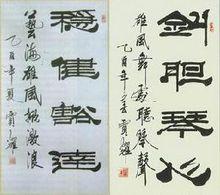 劍胆琴心
雄風舞劍聽琴聲
乙酉年夏
穩健豁達
藝海雄風激浪
乙酉年夏